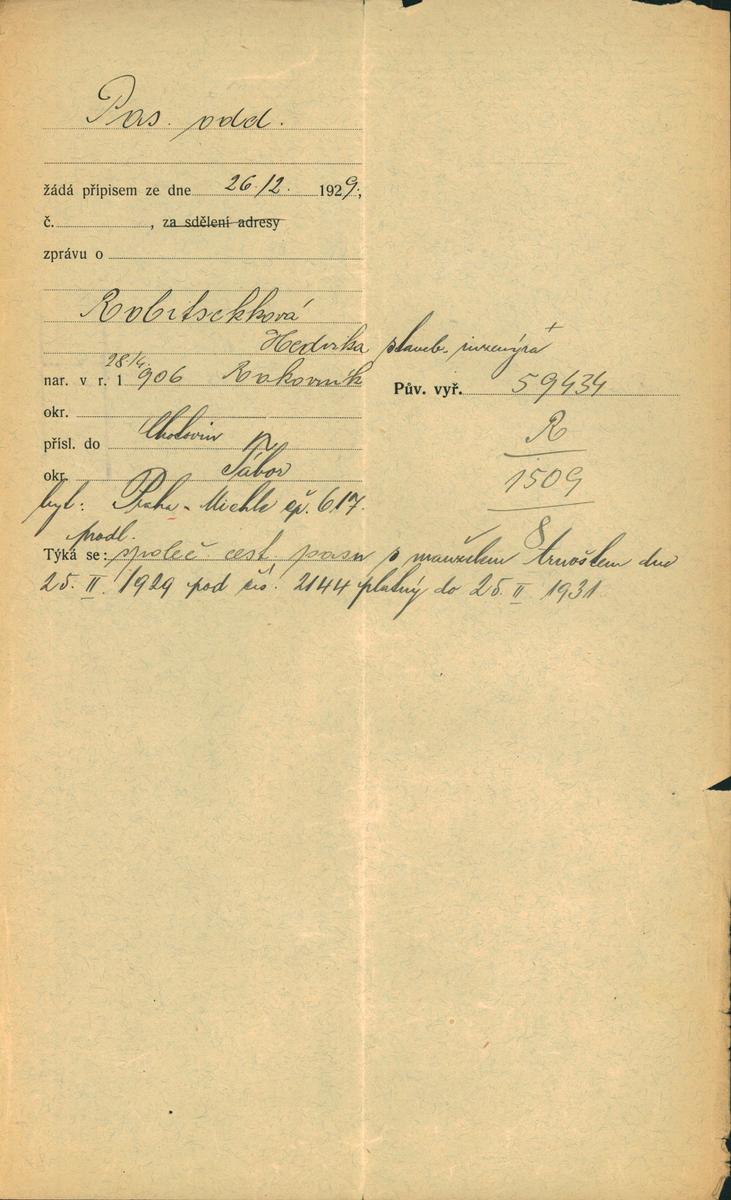 Pas. odd.
žádá přípisem ze dne 26./2. 1929;
č. , za sdělení adresy
zprávu o
Robitschková
Hedvika staveb. inženýra
28./4.
nar. v r. 1906 Rakovník
Pův. vyř. 59434
okr.
R
přísl. do Chotovin
okr. Tábor
1509
8
byt: Praha - Michle čp. 617.
prodl.
Týká se: společ. cest. pasu s manželem Arnoštem dne
25. II. 1929 pod čís. 2144 platný do 25. II 1931